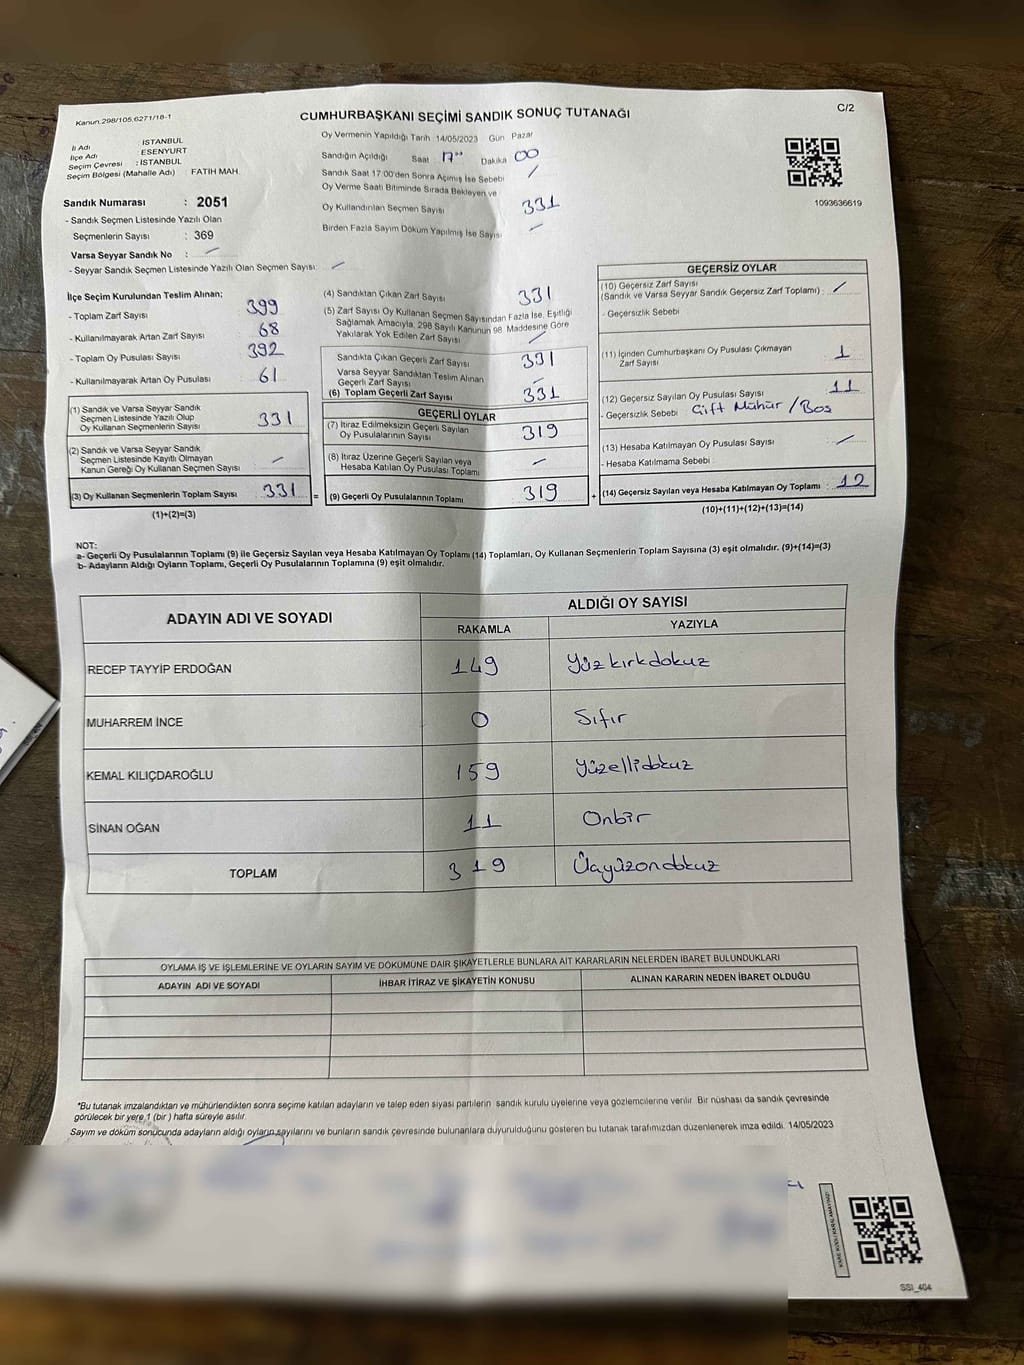 Kanun.298/105.6271/18-1
CUMHURBAŞKANI SEÇİMİ SANDIK SONUÇ TUTANAĞI
C/2
İl Adı : İSTANBUL
İlçe Adı : ESENYURT
Seçim Çevresi : İSTANBUL
Seçim Bölgesi (Mahalle Adı) FATİH MAH.
Sandık Numarası : 2051
- Sandık Seçmen Listesinde Yazılı Olan
Seçmenlerin Sayısı : 369
Varsa Seyyar Sandık No : /
- Seyyar Sandık Seçmen Listesinde Yazılı Olan Seçmen Sayısı: /
Oy Vermenin Yapıldığı Tarih 14/05/2023 Gün Pazar
Sandığın Açıldığı Saat 17°° Dakika 00
Sandık Saat 17:00'den Sonra Açılmış İse Sebebi /
Oy Verme Saati Bitiminde Sırada Bekleyen ve
Oy Kullandırılan Seçmen Sayısı 331
Birden Fazla Sayım Döküm Yapılmış İse Sayısı /
1093636619
İlçe Seçim Kurulundan Teslim Alınan;
- Toplam Zarf Sayısı 399
- Kullanılmayarak Artan Zarf Sayısı 68
- Toplam Oy Pusulası Sayısı 392
- Kullanılmayarak Artan Oy Pusulası 61
(1) Sandık ve Varsa Seyyar Sandık
Seçmen Listesinde Yazılı Olup
Oy Kullanan Seçmenlerin Sayısı 331
(2) Sandık ve Varsa Seyyar Sandık
Seçmen Listesinde Kayıtlı Olmayan
Kanun Gereği Oy Kullanan Seçmen Sayısı /
(3) Oy Kullanan Seçmenlerin Toplam Sayısı 331 =
(1)+(2)=(3)
(4) Sandıktan Çıkan Zarf Sayısı 331
(5) Zarf Sayısı Oy Kullanan Seçmen Sayısından Fazla İse, Eşitliği
Sağlamak Amacıyla, 298 Sayılı Kanunun 98. Maddesine Göre
Yakılarak Yok Edilen Zarf Sayısı /
Sandıkta Çıkan Geçerli Zarf Sayısı 331
Varsa Seyyar Sandıktan Teslim Alınan
Geçerli Zarf Sayısı /
(6) Toplam Geçerli Zarf Sayısı 331
GEÇERLİ OYLAR
(7) İtiraz Edilmeksizin Geçerli Sayılan
Oy Pusulalarının Sayısı 319
(8) İtiraz Üzerine Geçerli Sayılan veya
Hesaba Katılan Oy Pusulası Toplamı /
(9) Geçerli Oy Pusulalarının Toplamı 319 +
GEÇERSİZ OYLAR
(10) Geçersiz Zarf Sayısı
(Sandık ve Varsa Seyyar Sandık Geçersiz Zarf Toplamı) : /
- Geçersizlik Sebebi
(11) İçinden Cumhurbaşkanı Oy Pusulası Çıkmayan
Zarf Sayısı 1
(12) Geçersiz Sayılan Oy Pusulası Sayısı 11
- Geçersizlik Sebebi Çift Mühür / Boş
(13) Hesaba Katılmayan Oy Pusulası Sayısı /
- Hesaba Katılmama Sebebi
(14) Geçersiz Sayılan veya Hesaba Katılmayan Oy Toplamı : 12
(10)+(11)+(12)+(13)=(14)
NOT:
a- Geçerli Oy Pusulalarının Toplamı (9) ile Geçersiz Sayılan veya Hesaba Katılmayan Oy Toplamı (14) Toplamları, Oy Kullanan Seçmenlerin Toplam Sayısına (3) eşit olmalıdır. (9)+(14)=(3)
b- Adayların Aldığı Oyların Toplamı, Geçerli Oy Pusulalarının Toplamına (9) eşit olmalıdır.
ADAYIN ADI VE SOYADI ALDIĞI OY SAYISI
RAKAMLA YAZIYLA
RECEP TAYYİP ERDOĞAN 149 Yüzkırkdokuz
MUHARREM İNCE 0 Sıfır
KEMAL KILIÇDAROĞLU 159 Yüzellidokuz
SİNAN OĞAN 11 Onbir
TOPLAM 319 Üçyüzondokuz
OYLAMA İŞ VE İŞLEMLERİNE VE OYLARIN SAYIM VE DÖKÜMÜNE DAİR ŞİKAYETLERLE BUNLARA AİT KARARLARIN NELERDEN İBARET BULUNDUKLARI
ADAYIN ADI VE SOYADI İHBAR İTİRAZ VE ŞİKAYETİN KONUSU ALINAN KARARIN NEDEN İBARET OLDUĞU
*Bu tutanak imzalandıktan ve mühürlendikten sonra seçime katılan adayların ve talep eden siyasi partilerin sandık kurulu üyelerine veya gözlemcilerine verilir. Bir nüshası da sandık çevresinde
görülecek bir yere 1 (bir) hafta süreyle asılır.
Sayım ve döküm sonucunda adayların aldığı oyların sayılarını ve bunların sandık çevresinde bulunanlara duyurulduğunu gösteren bu tutanak tarafımızdan düzenlenerek imza edildi. 14/05/2023
KARE KODU KARALAMAYINIZ!
SSI_404